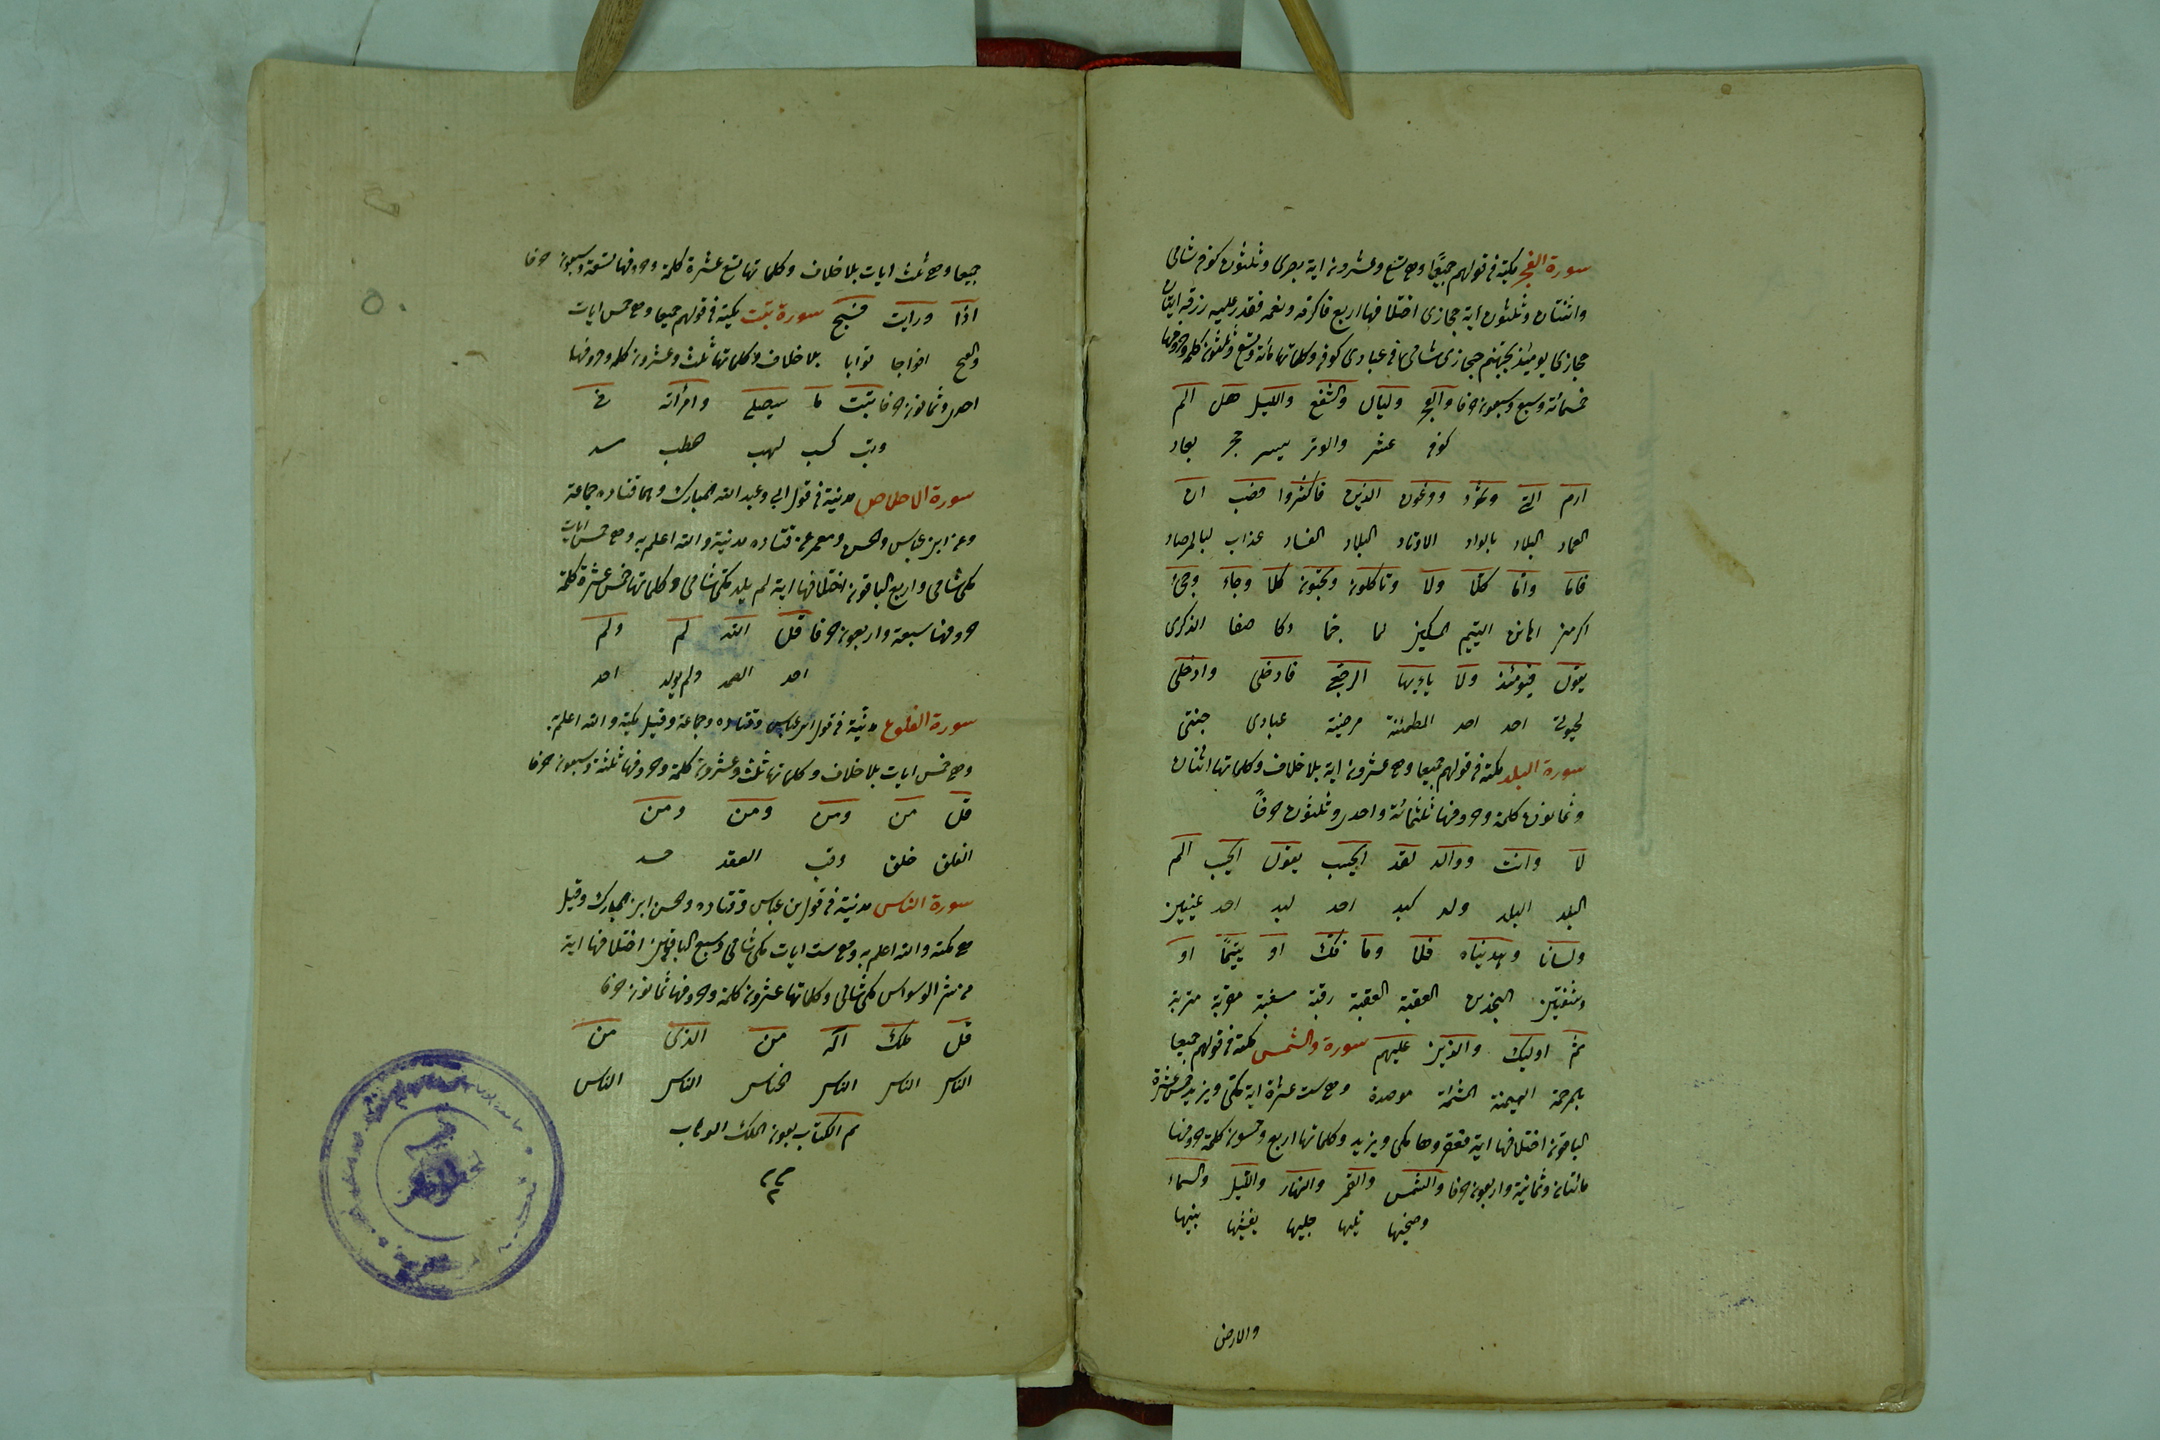 سورة الفجر مكية في قولهم جميعا وهي تسع وعشرون اية بصرى وثلثون كوفي شامي
واثنتان وثلثون اية حجازى اختلافها اربع فاكرمه ونعمه فقدر عليه رزقه ايتان
حجازى يومئذ بجهنم حجازى شامي في عبادى كوفي وكلماتها مائة وتسع وثلثون كلمة وحروفها
خمسمائة وسبع وسبعون حرفا والفجر وليال والشفع والليل هل الم
كوفي عشر والوتر يسر حجر بعاد
ارم التي وثمود وفرعون الذين فاكثروا فصب ان
العماد البلاد بالواد الاوتاد البلاد الفساد عذاب لبالمرصاد
فاما واما كلا ولا وتاكلون وتحبون كلا وجاء وجئ
اكرمن اهانن اليتيم المسكين لما جما دكا صفا الذكرى
يقول فيومئذ ولا ياايتها ارجعي فادخلى وادخلى
لحيوتى احد احد المطمئنة مرضية عبادى جنتى
سورة البلد مكية في قولهم جميعا وهي عشرون اية بلا خلاف وكلماتها اثنان
وثمانون كلمة وحروفها ثلثمائة واحدى وثلثون حرفا
لا وانت ووالد لقد ايحسب يقول ايحسب الم
البلد البلد ولد كبد احد لبد احد عينين
ولسانا وهديناه فلا وما فك او يتيما او
وشفتين النجدين العقبة العقبة رقبة مسغبة مقربة متربة
ثم اوليك والذين عليهم سورة والشمس مكية في قولهم جميعا
بالمرحمة الميمنة المشئمة موصدة وهي ست عشرة اية مكي ويزيد خمس عشرة
الباقون اختلافها اية فعقروها مكي ويزيد وكلماتها اربع وخمسون كلمة وحروفها
مائتان وثمانية واربعون حرفا والشمس والقمر والنهار والليل والسماء
وضحيها تليها جليها يغشيها بنيها
والارض
جميعا وهي ثلث ايات بلا خلاف وكلماتها تسع عشرة كلمة وحروفها تسعة وسبعون حرفا
اذا ورايت فسبح سورة تبت مكية في قولهم جميعا وهي خمس ايات
والفتح افواجا توابا بلا خلاف وكلماتها ثلث وعشرون كلمة وحروفها
احدى وثمانون حرفا تبت ما سيصلى وامرأته في
وتب كسب لهب حطب مسد
سورة الاخلاص مدنية في قول ابي وعبد الله المبارك وهما قتاده جماعة
وعن ابن عباس والحسن ومعمر عن قتاده مدنية والله اعلم به وهي خمس ايات
مكي شامى واربع الباقون اختلافها اية لم يلد مكي شامى وكلماتها خمس عشرة كلمة
وحروفها سبعة واربعون حرفا قل الله لم ولم
احد الصمد ولم يولد احد
سورة الفلوع مدنية في قول ابن عباس وقتاده وجماعة وقيل مكية والله اعلم
وهي خمس ايات بلا خلاف وكلماتها ثلث وعشرون كلمة وحروفها ثلثة وسبعون حرفا
قل من ومن ومن ومن
الفلق خلق وقب العقد حسد
سورة الناس مدنية في قول بن عباس وقتاده والحسن ابن المبارك وقيل
هي مكية والله اعلم به وهي ست ايات مكي شامى وسبع الباقين اختلافها اية
من شر الوسواس مكي شامى وكلماتها عشرون كلمة وحروفها ثمانون حرفا
قل ملك اله من الذى من
الناس الناس الناس الخناس الناس الناس
تم الكتاب بعون الملك الوهاب